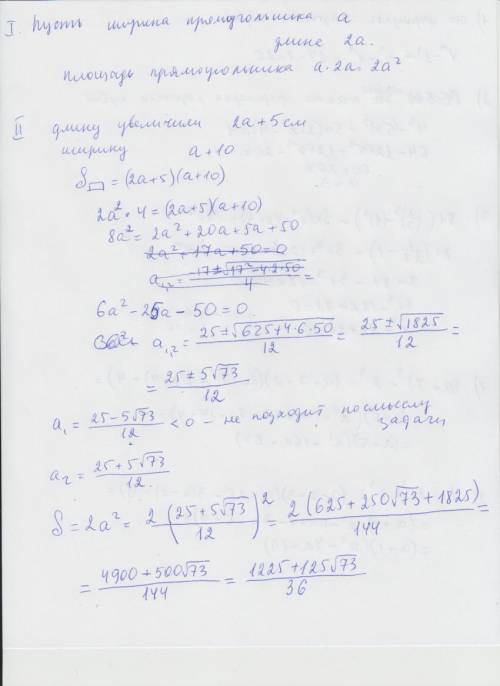 I. Пусть ширина прямоугольника a
длина 2a.
площадь прямоугольника a·2a = 2a²
II длину увеличили 2a+5см
ширину a+10
S▭ = (2a+5)(a+10)
2a²·4 = (2a+5)(a+10)
8a² = 2a²+20a+5a+50
2a²+17a+50=0
a₁,₂ = (-17±√(17²-4·2·50))/4 =
6a²-25a-50=0.
a₁,₂ = (25±√(625+4·6·50))/12 = (25±√1825)/12 =
= (25±5√73)/12
a₁ = (25-5√73)/12 <0 - не подходит по смыслу
задачи
a₂ = (25+5√73)/12.
S = 2a² = 2((25+5√73)/12)² = 2(625+250√73+1825)/144 =
= (4900+500√73)/144 = (1225+125√73)/36